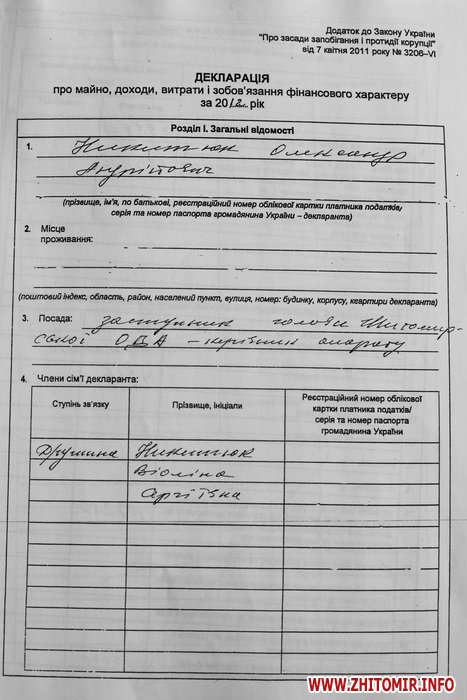 Додаток до Закону України
"Про засади запобігання і протидії корупції"
від 7 квітня 2011 року № 3206–VI
ДЕКЛАРАЦІЯ
про майно, доходи, витрати і зобов'язання фінансового характеру
за 2012 рік
Розділ І. Загальні відомості
1. Никитюк Олександр
Андрійович
(прізвище, ім'я, по батькові, реєстраційний номер облікової картки платника податків/
серія та номер паспорта громадянина України – декларанта)
2. Місце
проживання:
(поштовий індекс, область, район, населений пункт, вулиця, номер: будинку, корпусу, квартири декларанта)
3. Посада: заступник голови Житомир-
ської ОДА – керівник апарату
4. Члени сім'ї декларанта:
Ступінь зв'язку
Прізвище, ініціали
Реєстраційний номер облікової
картки платника податків/
серія та номер паспорта
громадянина України
Дружина Никитюк
Віоліна
WWW.ZHITOMIR.INFO